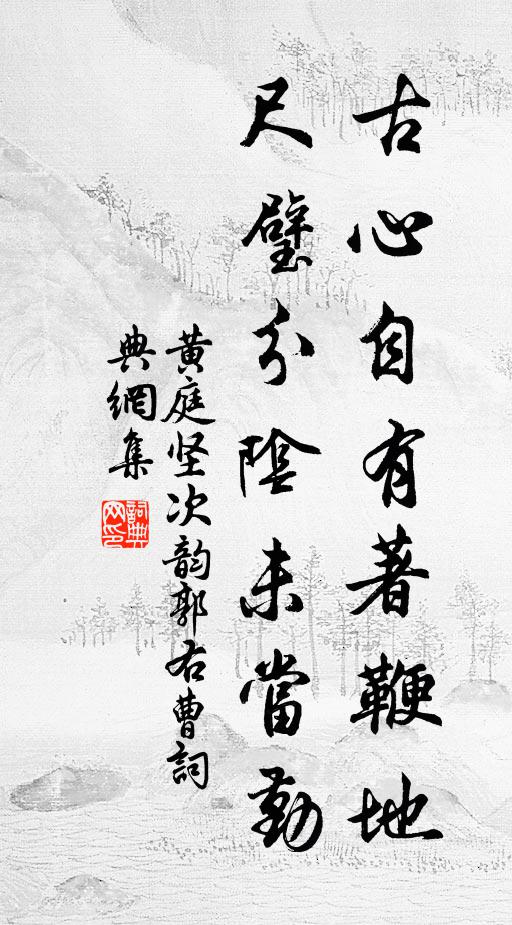 古心自有著鞭地
尺璧分陰未當勤
黄庭坚次韵郭右曹詞
典網集
詞典
网印